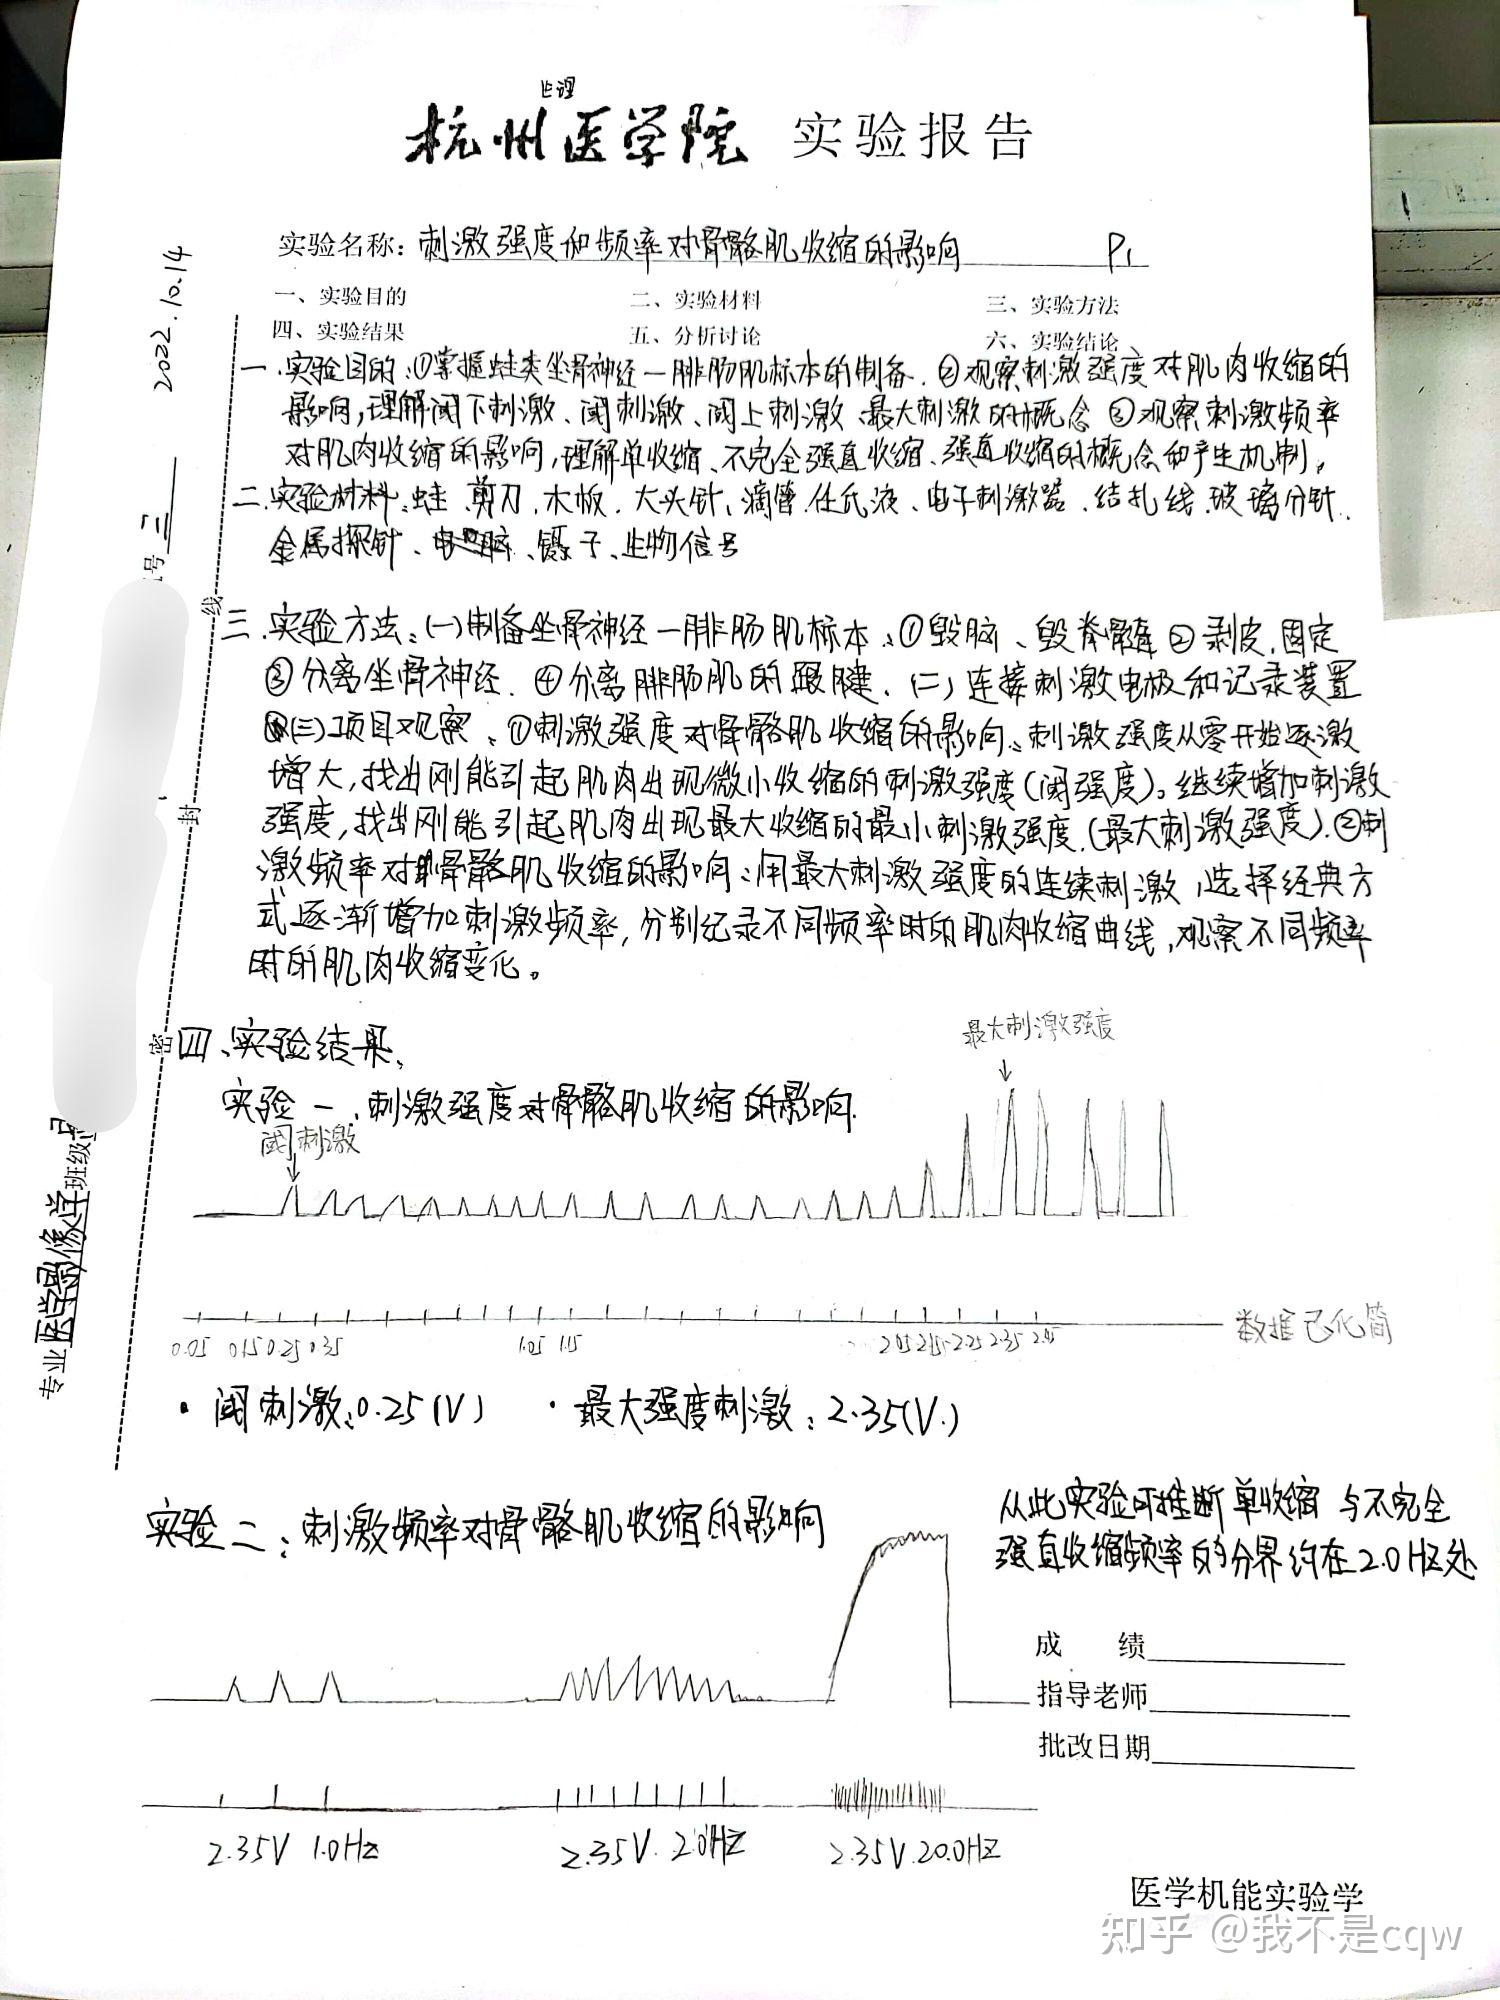 生理
杭州医学院 实验报告
实验名称: 刺激强度和频率对骨骼肌收缩的影响 P1
一、实验目的 二、实验材料 三、实验方法
四、实验结果 五、分析讨论 六、实验结论
一.实验目的:①掌握蛙类坐骨神经—腓肠肌标本的制备.②观察刺激强度对肌肉收缩的
影响,理解阈下刺激、阈刺激、阈上刺激、最大刺激的概念③观察刺激频率
对肌肉收缩的影响,理解单收缩、不完全强直收缩、强直收缩的概念和产生机制。
二.实验材料:蛙.剪刀.木板.大头针、滴管.任氏液、电子刺激器.结扎线.玻璃分针.
金属探针、电脑、镊子、生物信号
三.实验方法:(一)制备坐骨神经—腓肠肌标本:①毁脑、毁脊髓②剥皮.固定
③分离坐骨神经.④分离腓肠肌的跟腱.(二)连接刺激电极和记录装置
(三)项目观察:①刺激强度对骨骼肌收缩的影响:刺激强度从零开始逐激
增大,找出刚能引起肌肉出现微小收缩的刺激强度(阈强度)。继续增加刺激
强度,找出刚能引起肌肉出现最大收缩的最小刺激强度.(最大刺激强度).②刺
激频率对骨骼肌收缩的影响:用最大刺激强度的连续刺激,选择经典方
式逐渐增加刺激频率,分别纪录不同频率时的肌肉收缩曲线,观察不同频率
时的肌肉收缩变化。
四、实验结果:
最大刺激强度
实验一:刺激强度对骨骼肌收缩的影响.
阈刺激
0.05 0.15 0.25 0.35 1.05 1.15 2.05 2.15 2.25 2.35 2.45 数据已化简
·阈刺激:0.25(V) ·最大强度刺激:2.35(V.)
实验二:刺激频率对骨骼肌收缩的影响
从此实验可推断单收缩与不完全
强直收缩频率的分界约在2.0HZ处
成 绩
指导老师
批改日期
2.35V 1.0Hz 2.35V. 2.0HZ 2.35V.20.0HZ
医学机能实验学
知乎 @我不是cqw
2022.10.14
号 三
线
封
密
专业 医学影像学 班级